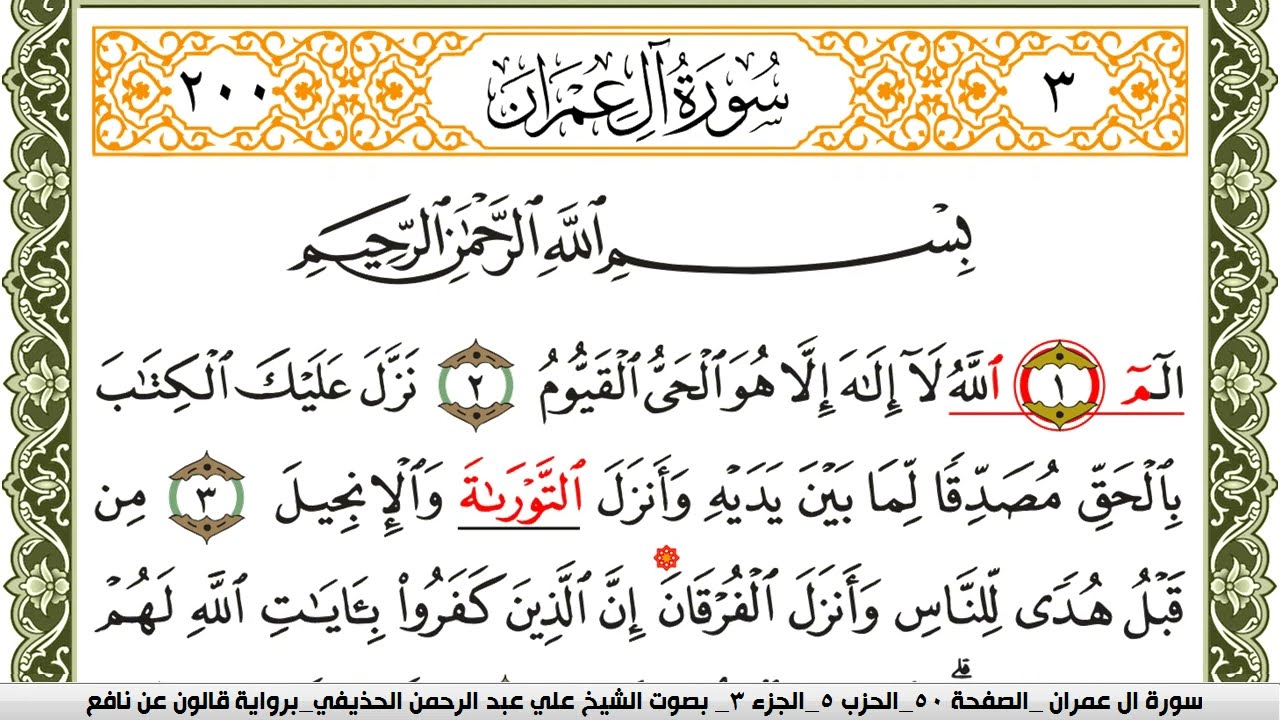 ٣ سُورَةُ آلِ عِمۡرَان ٢٠٠
بِسۡمِ ٱللَّهِ ٱلرَّحۡمَٰنِ ٱلرَّحِيمِ
الٓمٓ ١ ٱللَّهُ لَآ إِلَٰهَ إِلَّا هُوَ ٱلۡحَىُّ ٱلۡقَيُّومُ ٢ نَزَّلَ عَلَيۡكَ ٱلۡكِتَٰبَ
بِٱلۡحَقِّ مُصَدِّقٗا لِّمَا بَيۡنَ يَدَيۡهِ وَأَنزَلَ ٱلتَّوۡرَىٰةَ وَٱلۡإِنجِيلَ ٣ مِن
قَبۡلُ هُدٗى لِّلنَّاسِ وَأَنزَلَ ٱلۡفُرۡقَانَ إِنَّ ٱلَّذِينَ كَفَرُواْ بِـَٔايَٰتِ ٱللَّهِ لَهُمۡ
سورة ال عمران _الصفحة ٥٠_الحزب ٥_الجزء ٣_ بصوت الشيخ علي عبد الرحمن الحذيفي_برواية قالون عن نافع